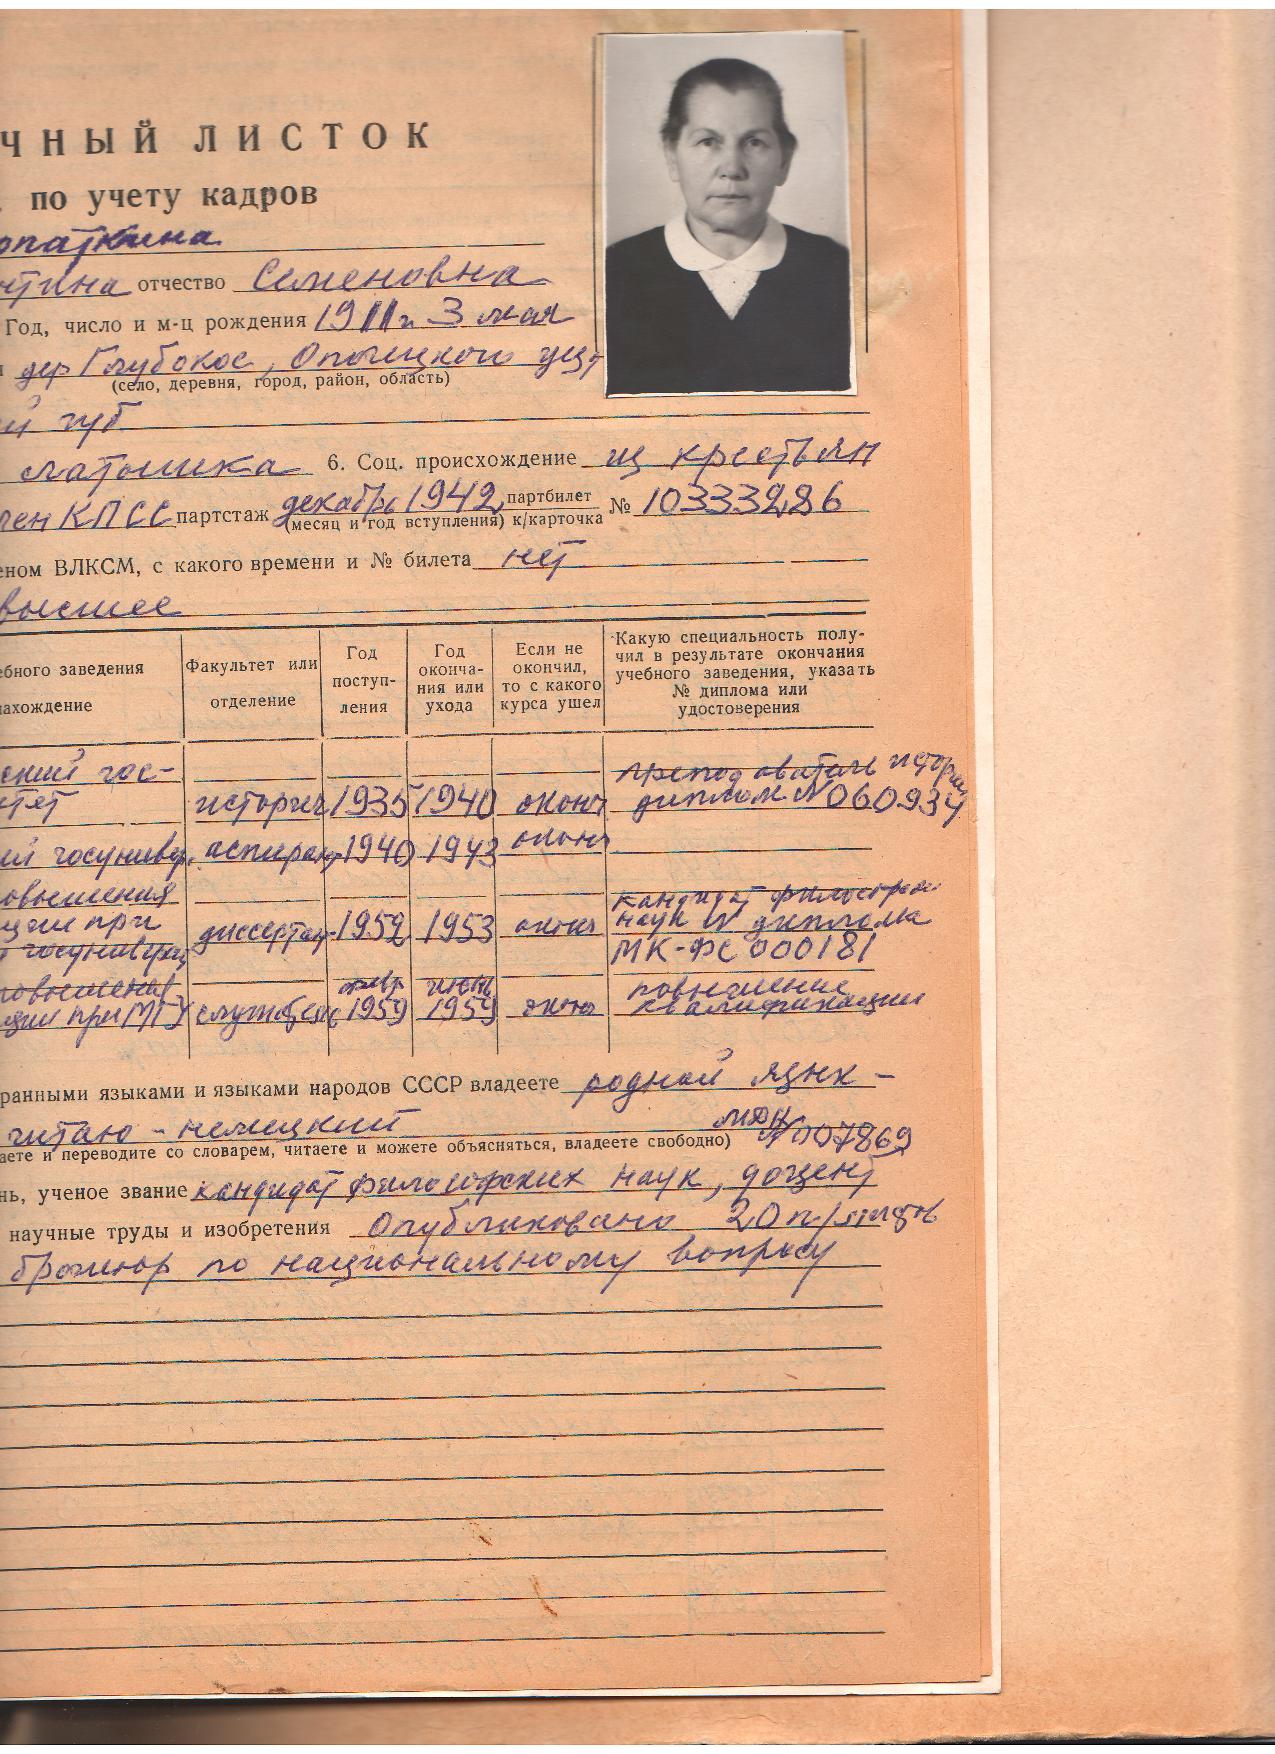 ЧНЫЙ ЛИСТОК
по учету кадров
опаткина
нтина отчество Семеновна
Год, число и м-ц рождения 1911 г. 3 мая
дер Глубокое, Опочецкого уезд
(село, деревня, город, район, область)
ий губ
латышка 6. Соц. происхождение из крестьян
лен КПСС партстаж декабрь 1942 партбилет № 10333286
(месяц и год вступления) к/карточка
еном ВЛКСМ, с какого времени и № билета нет
высшее
ебного заведения Факультет или отделение Год поступ-ления Год оконча-ния или ухода Если не окончил, то с какого курса ушел Какую специальность полу-чил в результате окончания учебного заведения, указать № диплома или удостоверения
ахождение
ский гос- преподаватель истории
тет историч 1935 1940 оконч диплом № 060934
ий госунивер. аспирант 1940 1943 оконч
овышения кандидат философских
ции при диссертац. 1952 1953 оконч наук № диплома
госунивер МК-ФС 000181
повышения февр июнь повышение
ции при МГУ 1959 1959 оконч квалификации
ранными языками и языками народов СССР владеете родной язык -
читаю - немецкий
аете и переводите со словарем, читаете и можете объясняться, владеете свободно) МДЦ № 007869
нь, ученое звание кандидат философских наук, доцент
научные труды и изобретения опубликовано 20 п/листов
брошюр по национальному вопросу